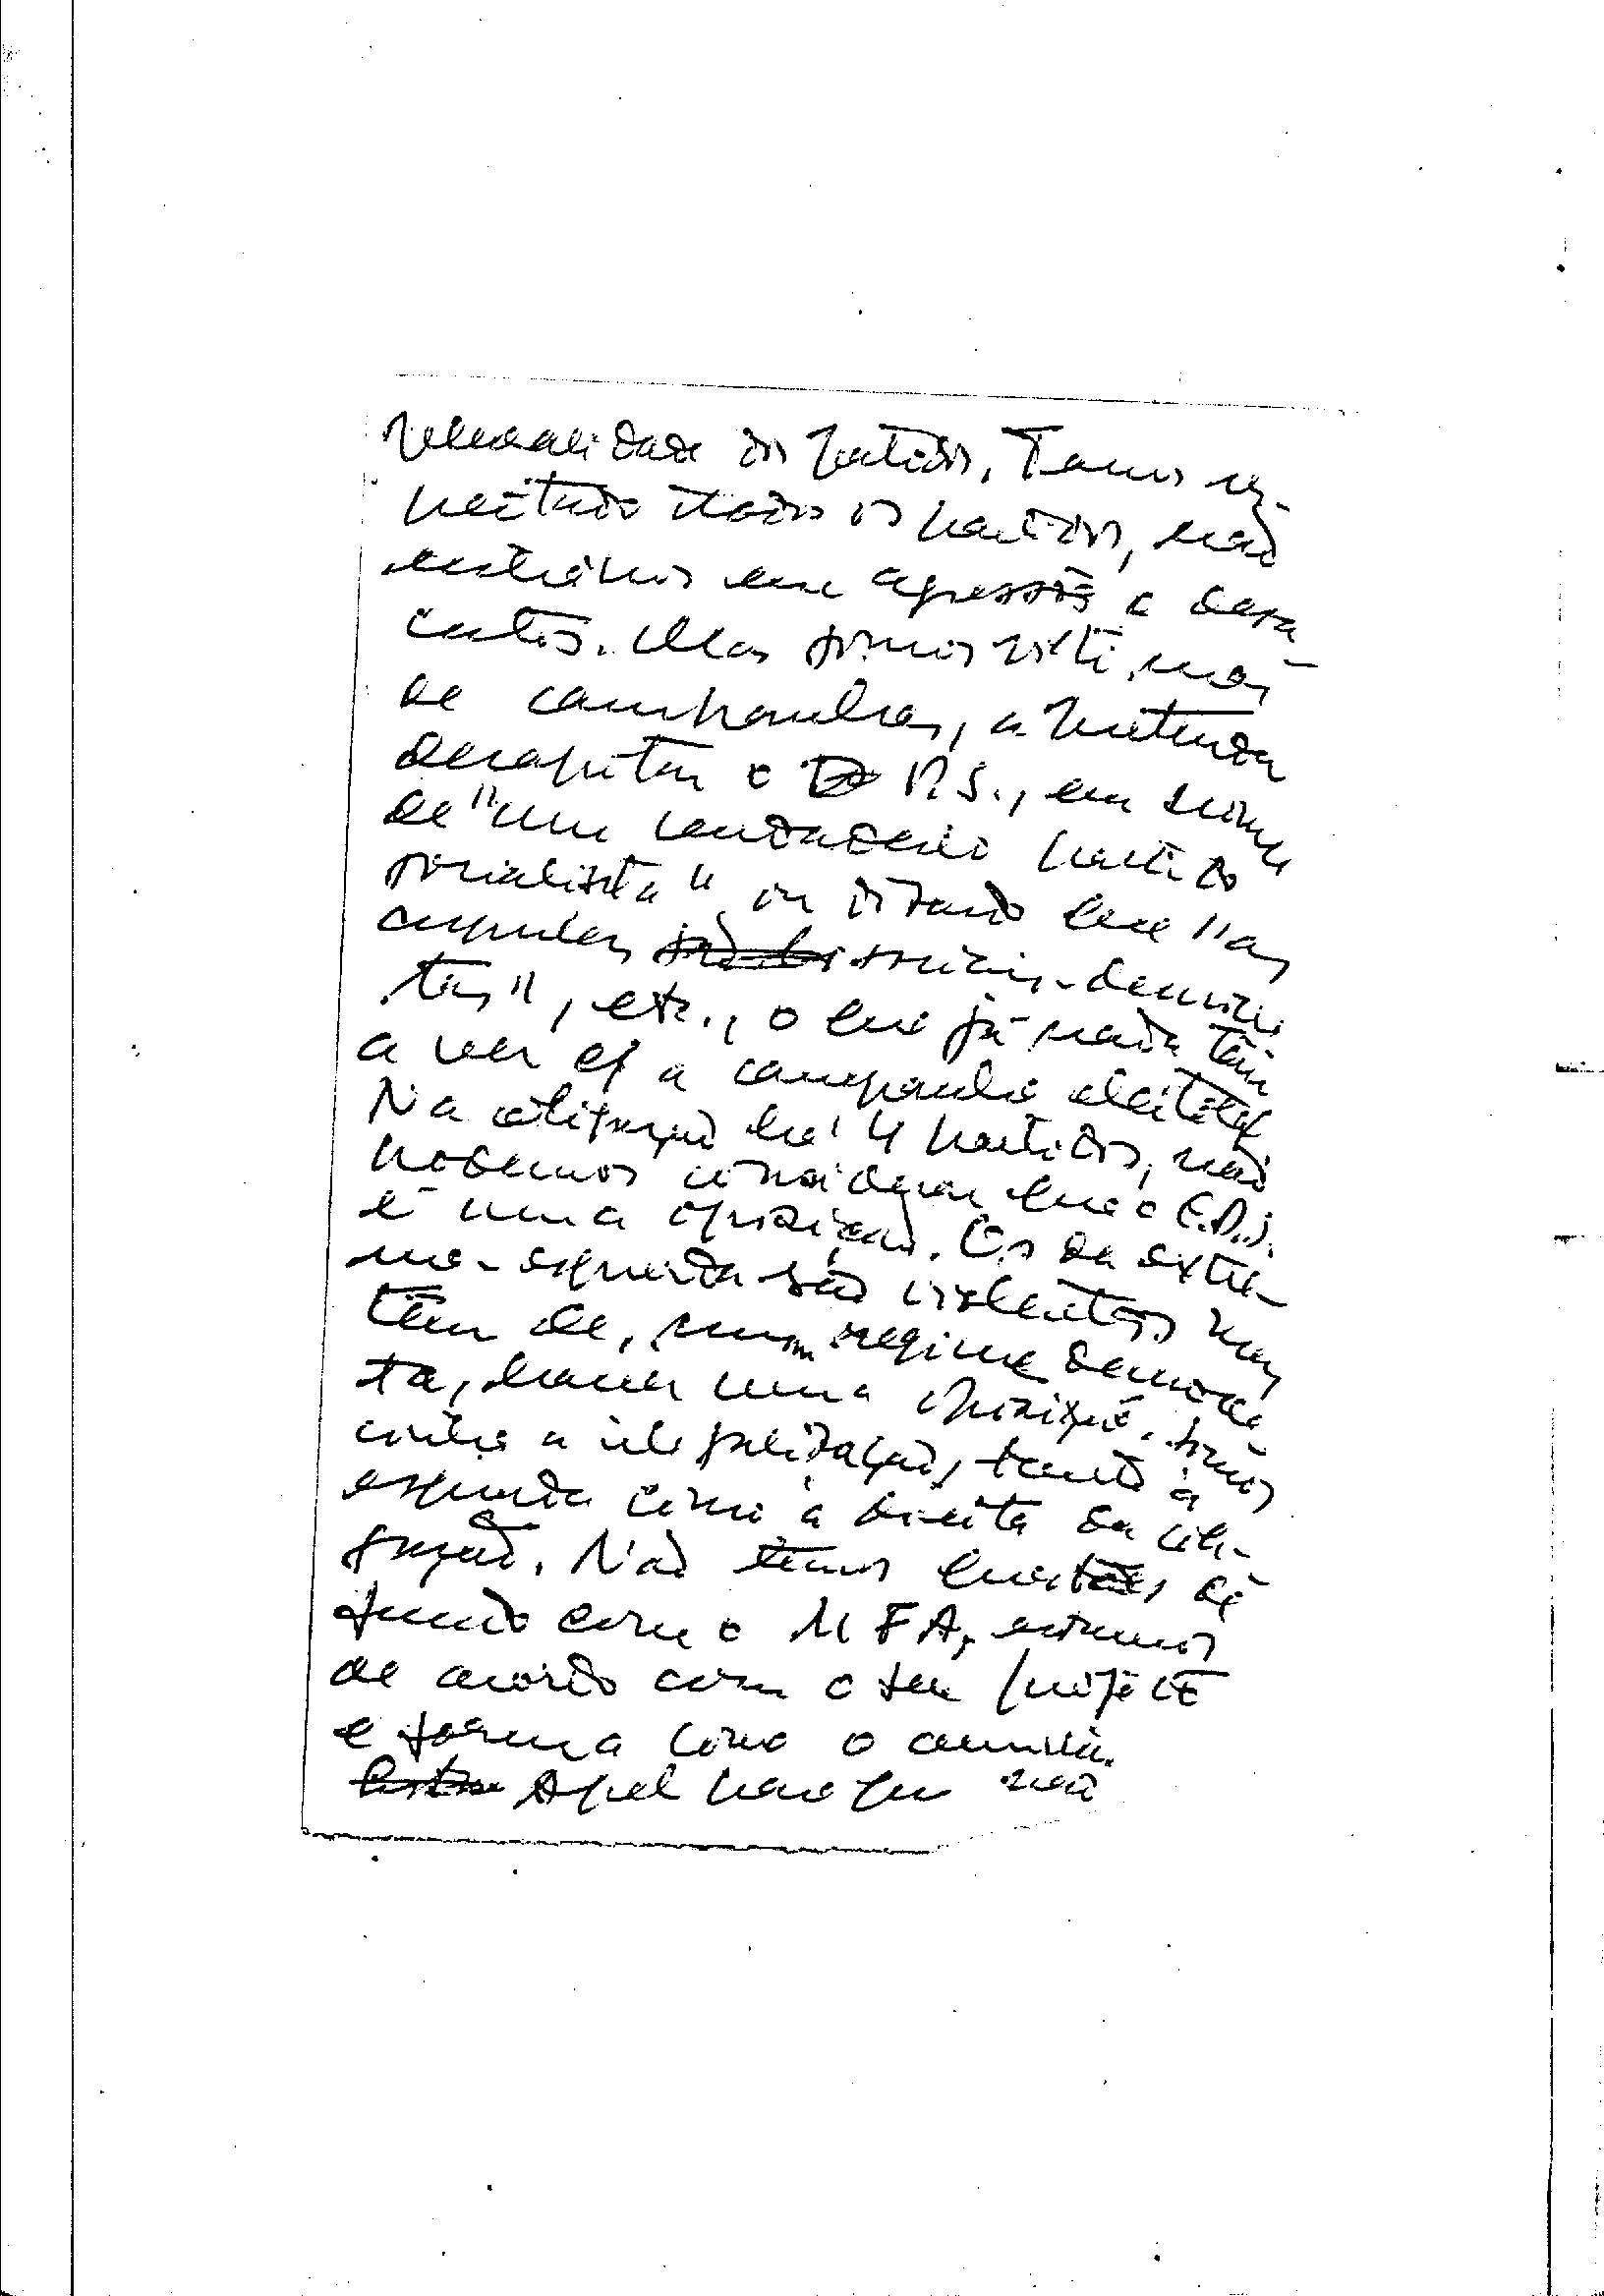 personalidade dos partidos. Temos res-
peitado todos os partidos, não
entrámos em agressões a desa
certos. Mas somos vítimas
de campanhas, a pretenda
decapitar o P.S., em nome
de "um verdadeiro partido
socialista" ou dizendo que "as
cupulas sociais-democra
tas", etc., o que já nada têm
a ver c/ a campanha eleitoral
Na coligação há 4 partidos, não
podemos considerar que o C.D.S.
é uma oposição. Os da extre-
ma-esquerda são violentos mas
têm de, num regime democra
ta, haver uma oposição. Somos
contra a ilegalização, tanto à
esquerda como à direita da coli-
gação. Não temos questões de
fundo com o MFA, estamos
de acordo com o seu projecto
e forma como o anuncia.
Apel para que não